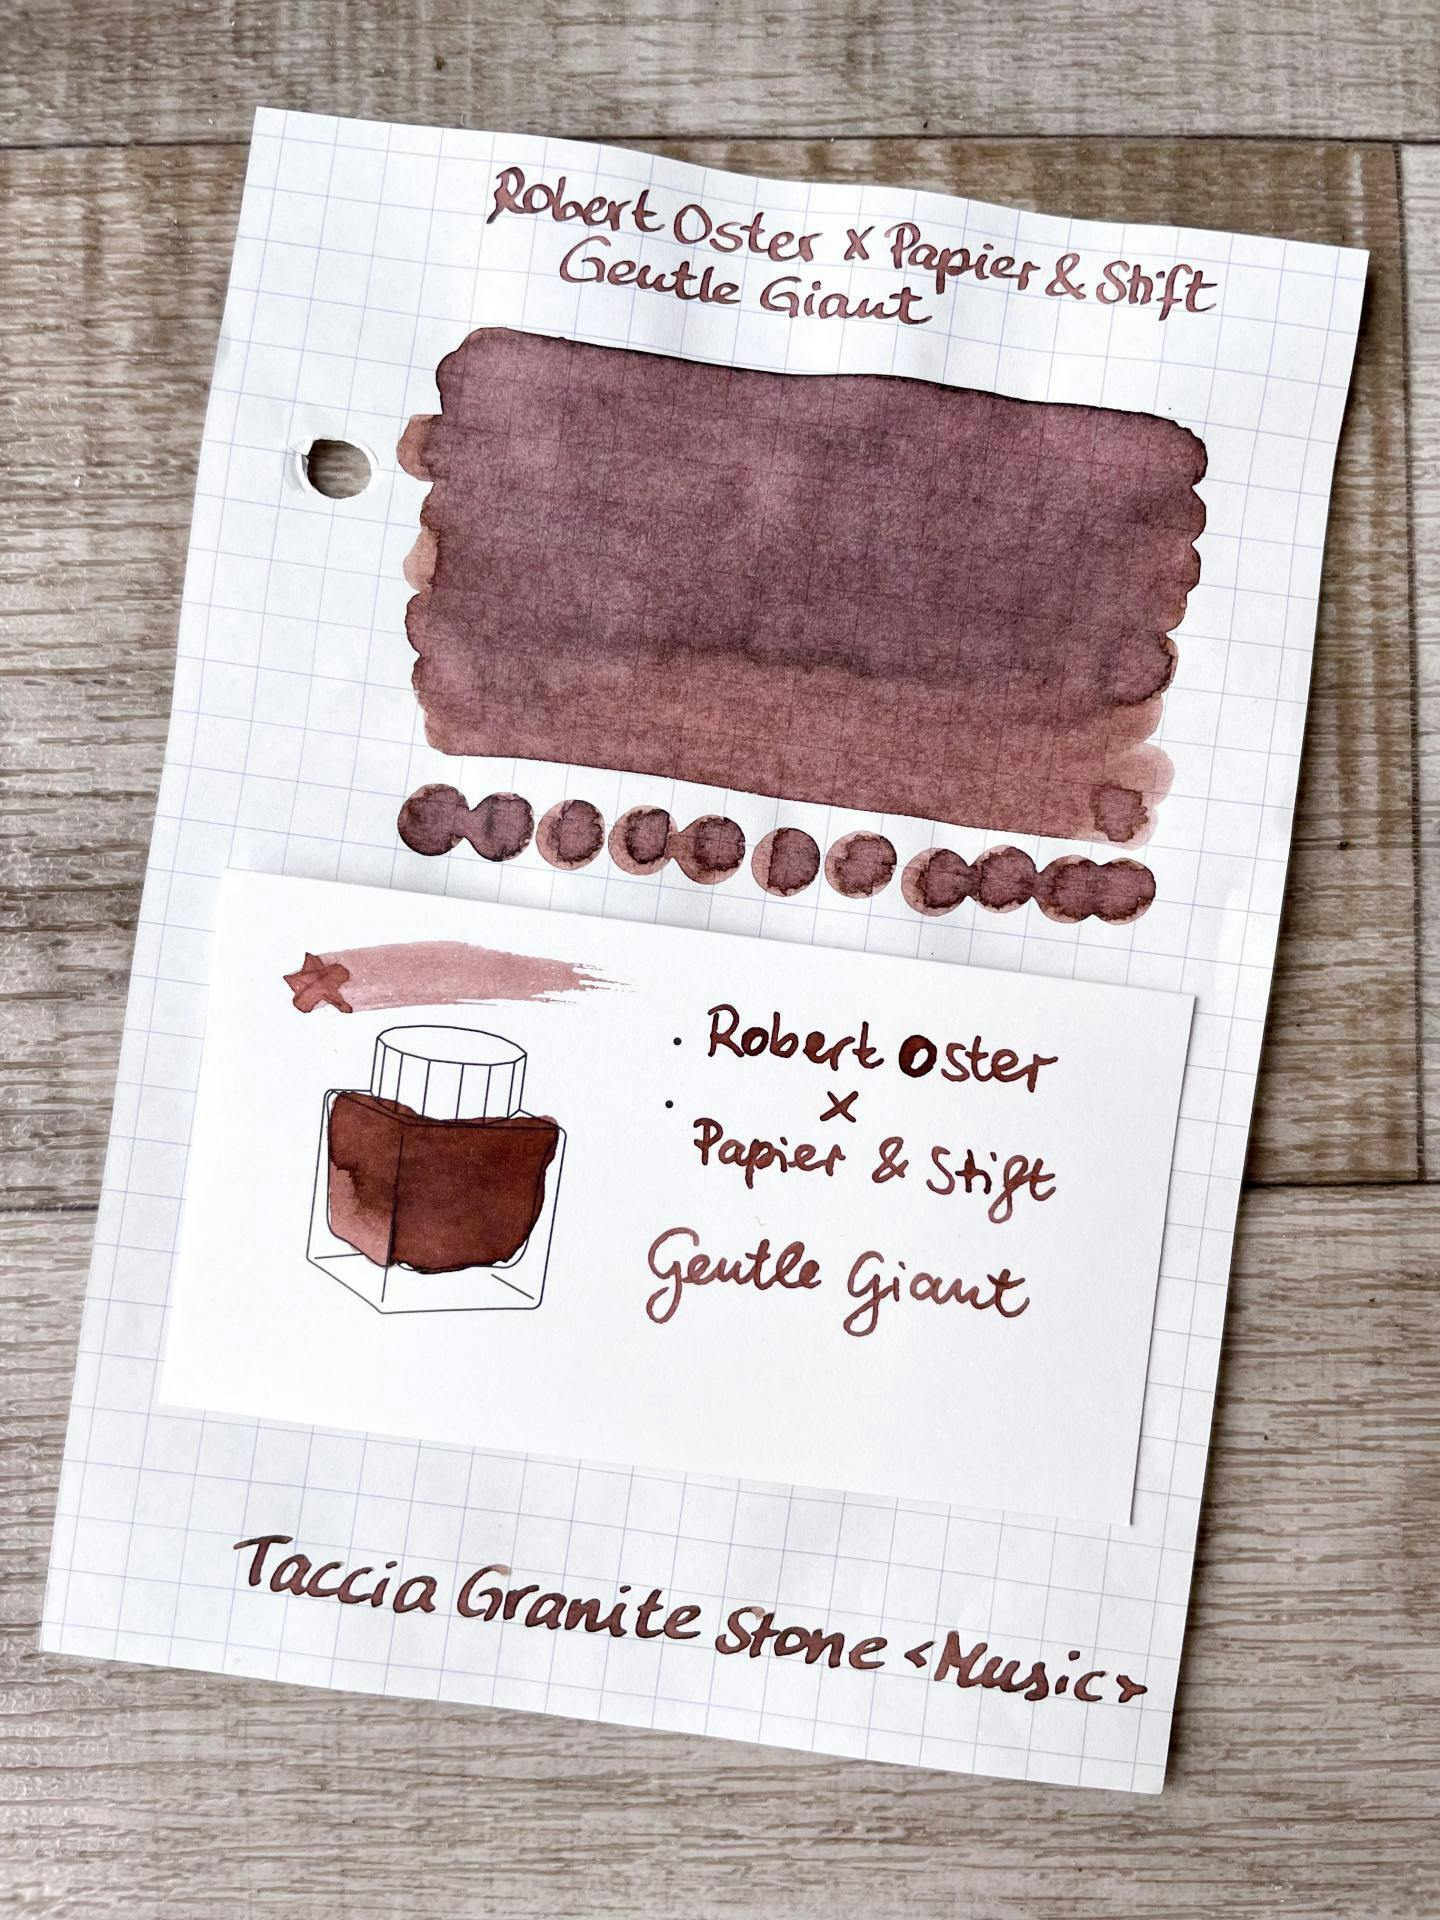 Robert Oster x Papier & Stift
Gentle Giant
Robert Oster
x
Papier & Stift
Gentle Giant
Taccia Granite Stone <Music>